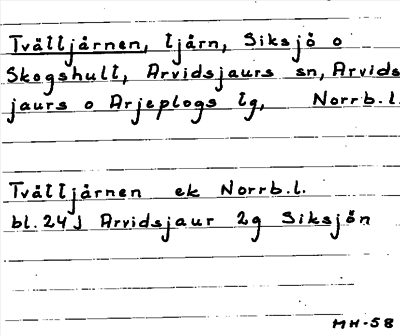 Tvättjärnen, tjärn, Siksjö o
Skogshult, Arvidsjaurs sn, Arvids
jaurs o Arjeplogs tg, Norrb.l.
Tvättjärnen ek Norrb.l.
bl. 24 J Arvidsjaur 2g Siksjön
MH-58